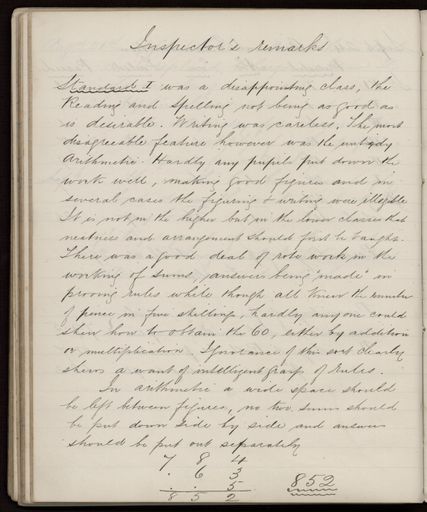 Inspector's remarks
Standard I was a disappointing class, the
Reading and Spelling not being as good as
is desirable. Writing was careless. The most
disagreeable feature however was the untidy
Arithmetic. Hardly any pupils put down the
work well, making good figures and in
several cases the figuring & writing were illegible
It is not in the higher but in the lower classes that
neatness and arrangement should first be taught.
There was a good deal of rote work in the
working of sums, answers being "made" in
proving rules while though all knew the number
of pence in five shillings, hardly any one could
shew how to obtain the 60, either by addition
or multiplication. Ignorance of this sort clearly
shews a want of intelligent grasp of rules.
In arithmetic a wide space should
be left between figures, no two sums should
be put down side by side and answers
should be put out separately
7 8 4
. 6 3
. . 5
8 5 2
852